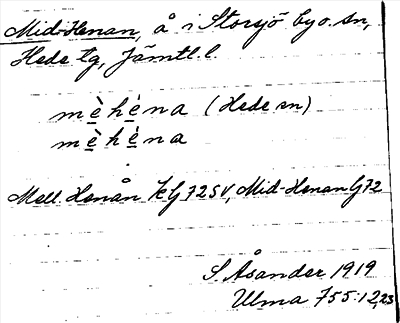 Mid-Henan, å i Storsjö byo. sn,
Hede tg, Jämtl. l.
mèhèna (Hede sn)
mèhèna
Mell. Henån KG 72 SV, Mid-Henan G 72
S. Åsander 1919
Ulma 755:12,23